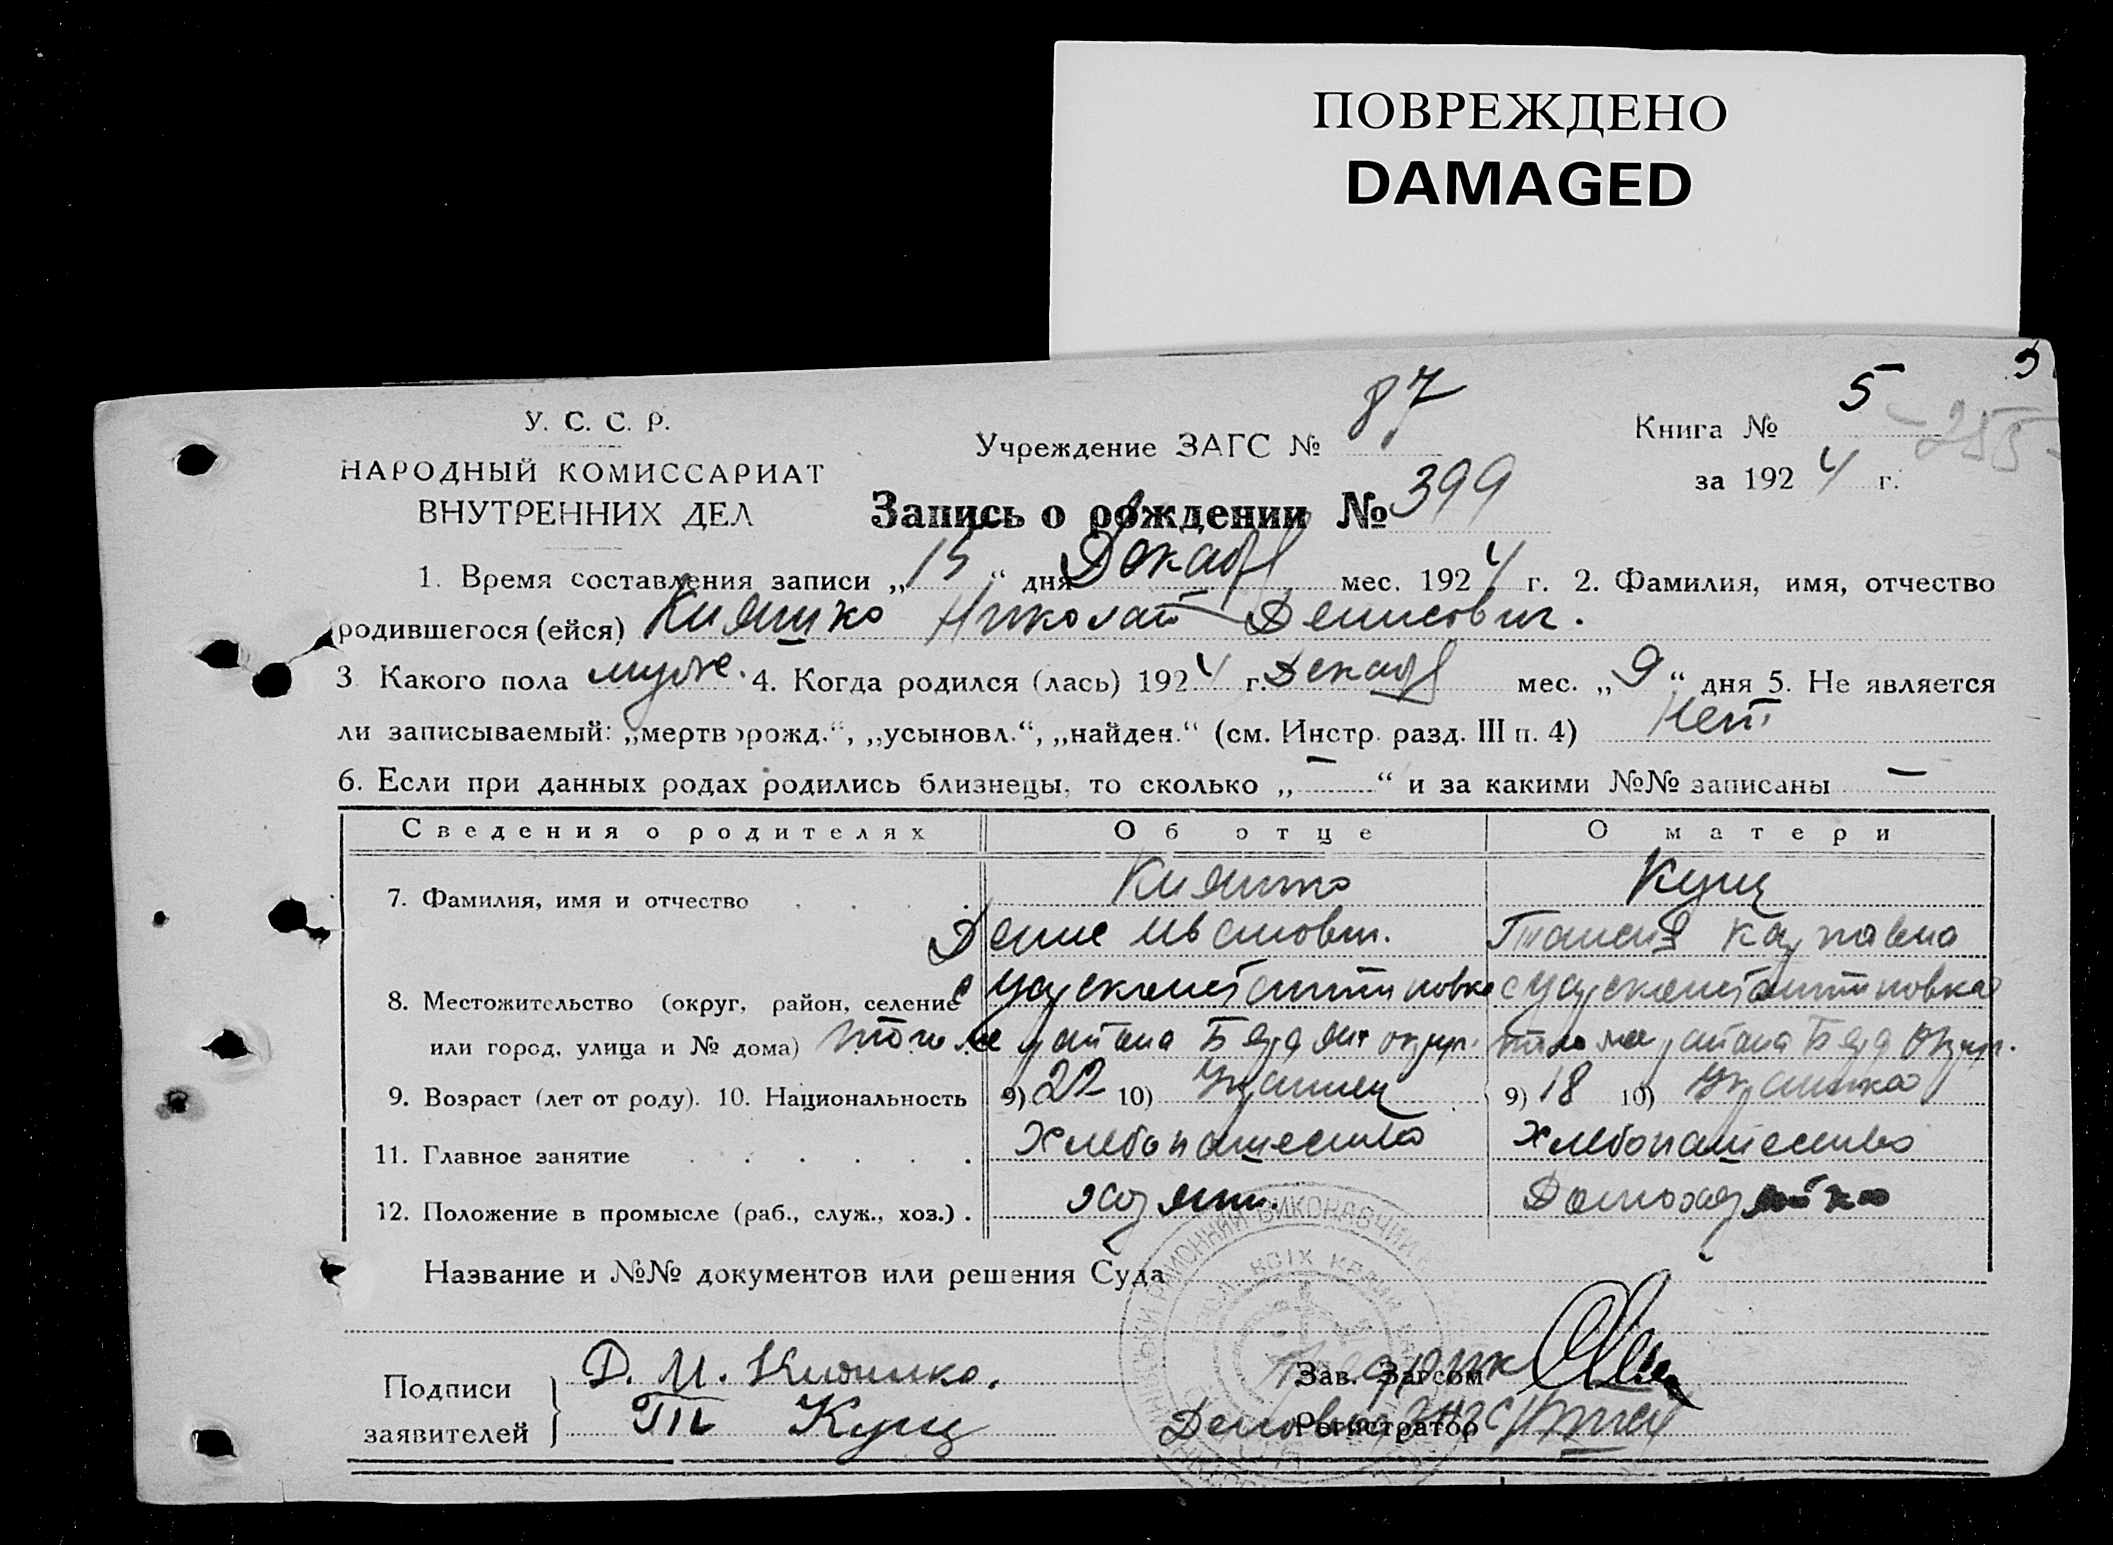 ПОВРЕЖДЕНО
DAMAGED
5
У. С. С. Р.
Учреждение ЗАГС № 87
Книга № 5
255
НАРОДНЫЙ КОМИССАРИАТ
ВНУТРЕННИХ ДЕЛ
за 1924 г.
Запись о рождении № 399
1. Время составления записи „15“ дня Декабр мес. 1924 г. 2. Фамилия, имя, отчество
родившегося (ейся) Кияшко Николай Денисович.
3 Какого пола муже. 4. Когда родился (лась) 1924 г. Декабр мес. „9“ дня 5. Не является
ли записываемый: „мертворожд.“, „усыновл.“, „найден.“ (см. Инстр. разд. III п. 4) Нет
6. Если при данных родах родились близнецы, то сколько „—“ и за какими №№ записаны —
Сведения о родителях Об отце О матери
7. Фамилия, имя и отчество Кияшко Кущ
Денис Иванович. Таисия Карповна
8. Местожительство (округ, район, селение с Цареконстантиновка с Цареконстантиновка
или город, улица и № дома) того же района Бердянс округ. того же района Берд Округ.
9. Возраст (лет от роду). 10. Национальность 9) 22 10) Украинец 9) 18 10) Украинка
11. Главное занятие Хлебопашество Хлебопашество
12. Положение в промысле (раб., служ., хоз.) хозяин. Домохозяйка
Название и №№ документов или решения Суда
Подписи Д. И. Кияшко. Зав. Загсом
заявителей Т Кущ Регистратор